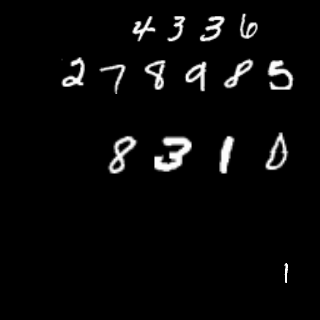 4336
278985
8310
1